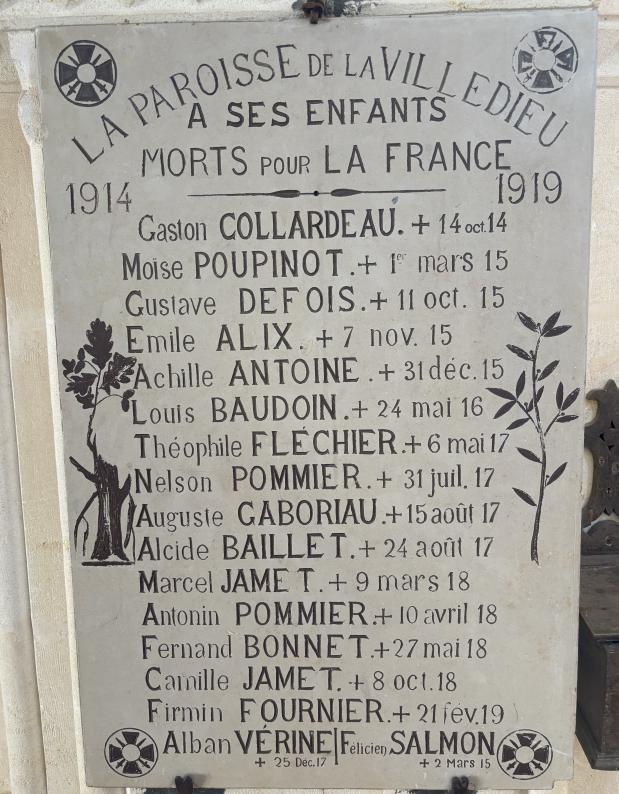 LA PAROISSE DE LA VILLEDIEU
A SES ENFANTS
MORTS POUR LA FRANCE
1914 1919
Gaston COLLARDEAU. + 14 oct. 14
Moïse POUPINOT. + 1er mars 15
Gustave DEFOIS. + 11 oct. 15
Emile ALIX. + 7 nov. 15
Achille ANTOINE. + 31 déc. 15
Louis BAUDOIN. + 24 mai 16
Théophile FLÉCHIER. + 6 mai 17
Nelson POMMIER. + 31 juil. 17
Auguste GABORIAU. + 15 août 17
Alcide BAILLET. + 24 août 17
Marcel JAMET. + 9 mars 18
Antonin POMMIER. + 10 avril 18
Fernand BONNET. + 27 mai 18
Camille JAMET. + 8 oct. 18
Firmin FOURNIER. + 21 fév. 19
Alban VÉRINE | Félicien SALMON
+ 25 Déc. 17 + 2 Mars 15